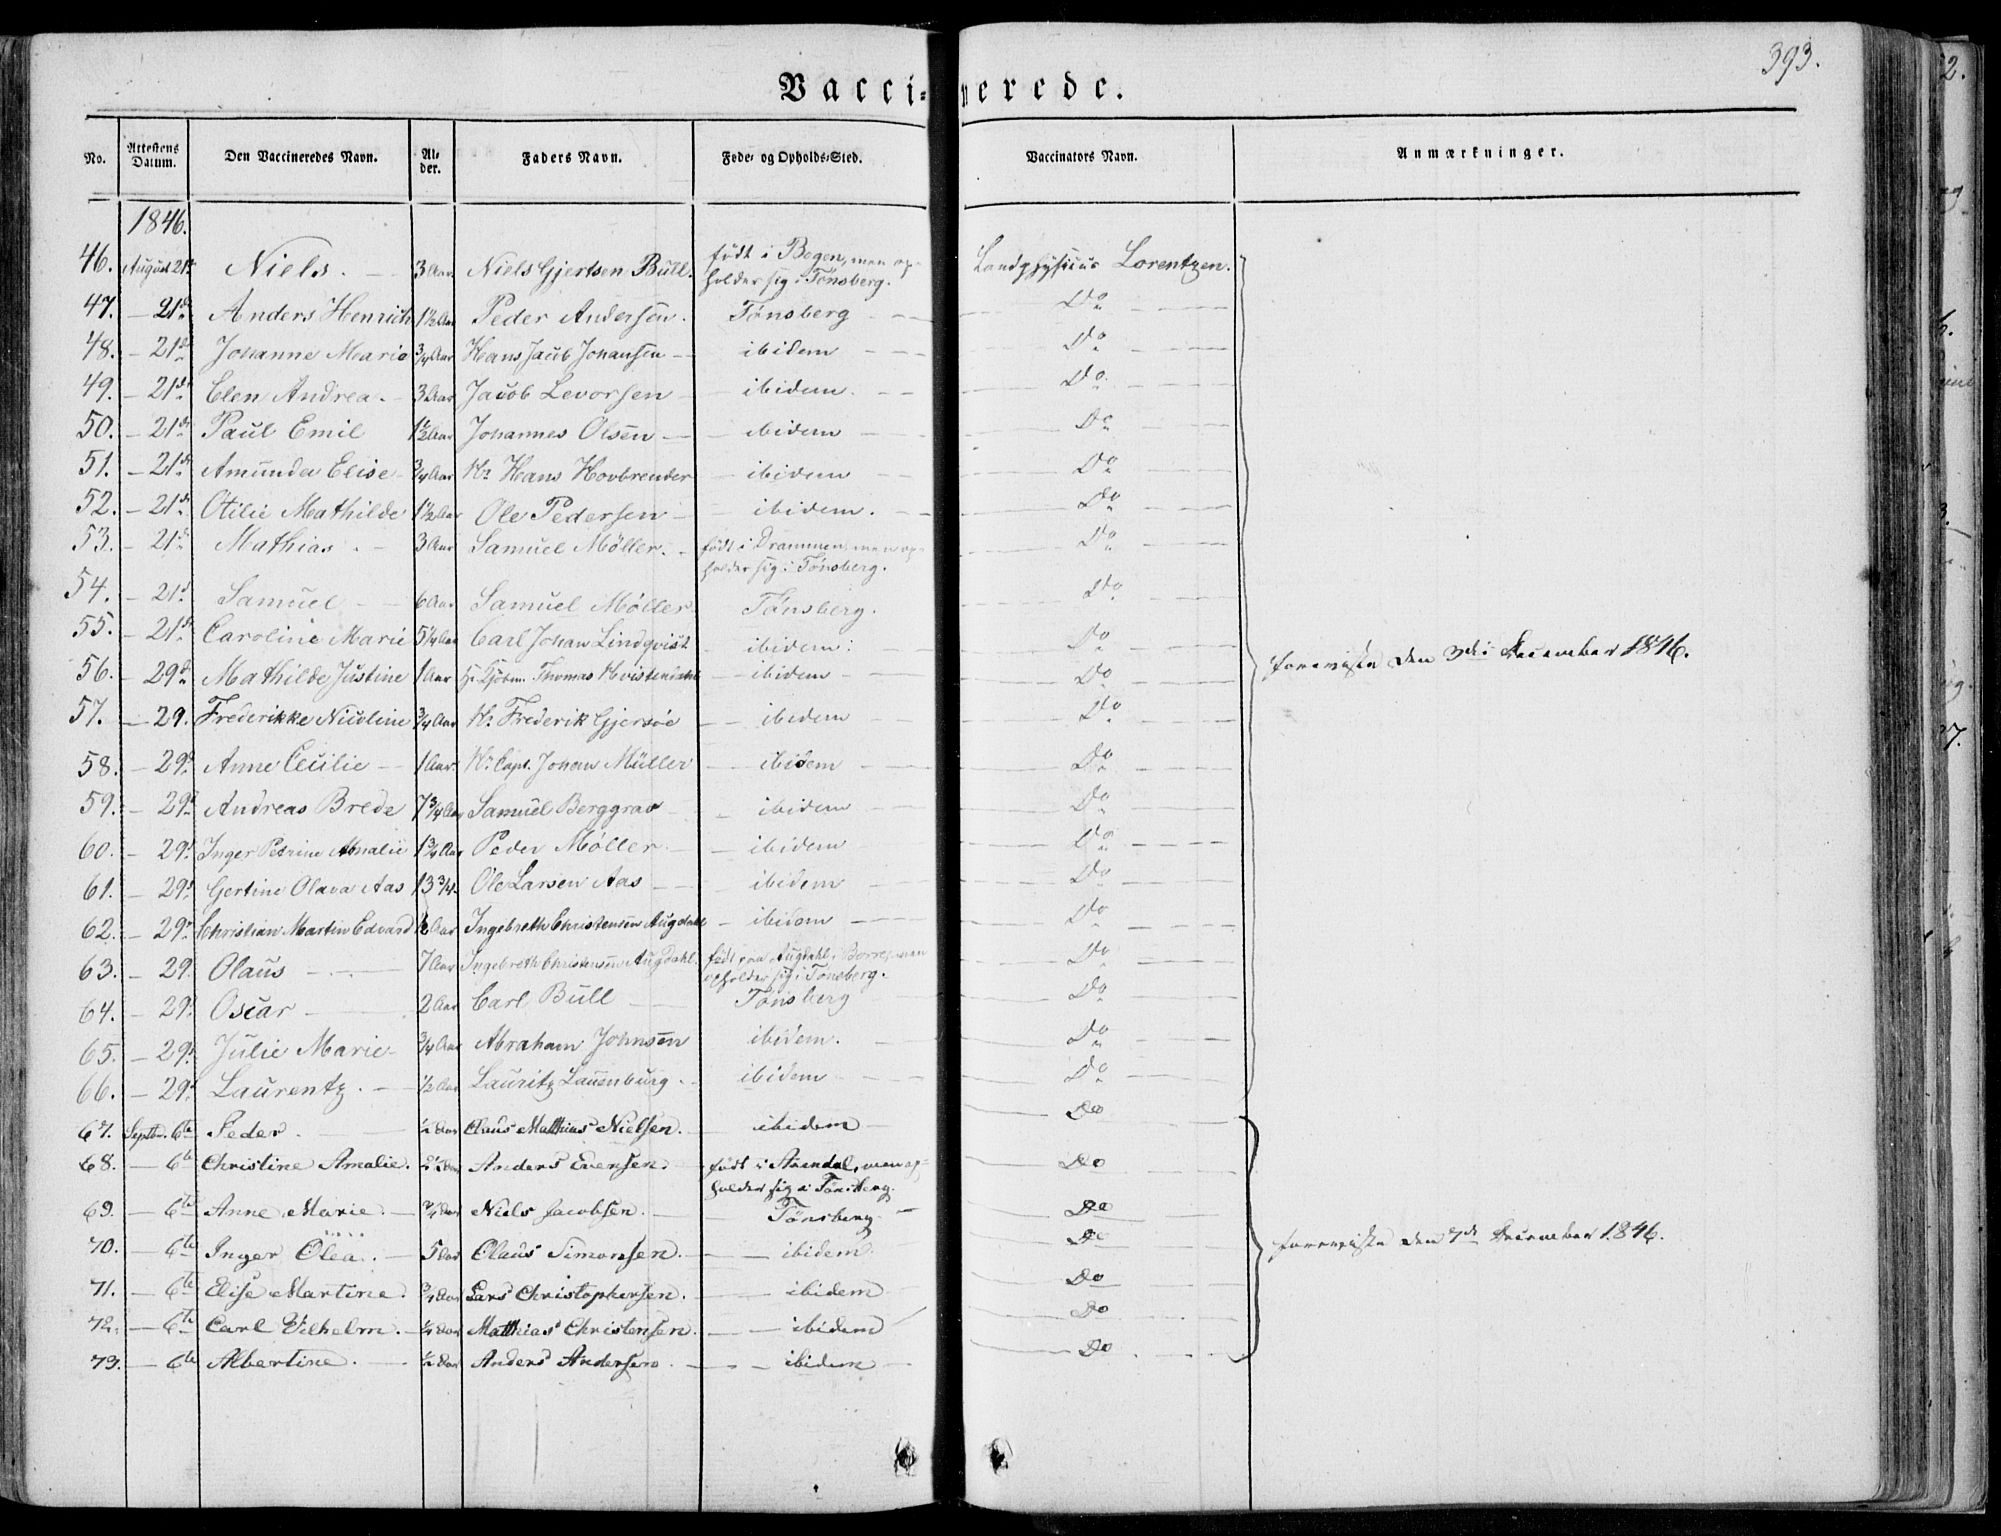 393.
Vaccinerede.
No. Attestens Datum. Den Vaccineredes Navn. Alder. Faders Navn. Føde- og Opholds-Sted. Vaccinators Navn. Anmærkninger.
1846.
46. August 21de Niels. 3 Aar Niels Gjertsen Bull. født i Bogen, men opholder sig i Tønsberg. Landphysicus Lorentzen.
47. – 21de Anders Henrich 1½ Aar Peder Andersen. Tønsberg Do
48. – 21de Johanne Marie ¾ Aar Hans Jacob Johansen ibidem Do
49. – 21de Elen Andrea. 3 Aar Jacob Levorsen ibidem. Do
50. – 21de Paul Emil 1½ Aar Johannes Olsen ibidem Do
51. – 21de Amunda Elise ¾ Aar Hr. Hans Hovbrender ibidem Do
52. – 21de Otilie Mathilde 1½ Aar Ole Pedersen ibidem. Do
53. – 21de Mathias. 3 Aar Samuel Möller. født i Drammen, men opholder sig i Tønsberg. Do
54. – 21de Samuel 6 Aar Samuel Möller Tønsberg. Do
55. – 21de Caroline Marie 5¼ Aar Carl Johan Lindqvist ibidem. Do
56. – 29de Mathilde Justine 1 Aar Hr. Kjøbm. Thomas Hvistendahl ibidem Do
forevist den 3die December 1846.
57. – 29. Frederikke Nicoline ¾ Aar Hr. Frederik Gjersøe ibidem Do
58. – 29de Anne Cecilie 1 Aar. Hr. Capt. Johan Müller ibidem Do
59. – 29de Andreas Brede 7¾ Aar Samuel Berggrav ibidem Do
60. – 29de Inger Petrine Amalie 1¾ Aar Peder Møller. ibidem Do
61. – 29de Gertine Olava Aas 13¾. Ole Larsen Aas ibidem Do
62. – 29de Christian Martin Edvard ½ Aar Ingebreth Christensen Augdahl ibidem Do
63. – 29. Olaus 7 Aar Ingebreth Christensen Augdahl. født paa Augdahl i Borre, men opholder sig i Tønsberg. Do
64. – 29de Oscar 2 Aar Carl Bull Tønsberg Do
65. – 29de Julie Marie ¾ Aar Abraham Johnsen ibidem. Do
66. – 29de Laurentz. ½ Aar Lauritz Lauenburg. ibidem Do
67. Septbr. 6te Peder. ½ Aar Claus Matthias Nielsen. ibidem Do
68. – 6te Christine Amalie. 2½ Aar Anders Evensen. født i Arendal, men opholder sig i Tønsberg. Do
69. – 6te Anne Marie. ¾ Aar Niels Jacobsen. Tønsberg Do
70. – 6te Inger Olea. 5 Aar Olaus Simonsen. ibidem. Do
forevist den 7de December 1846.
71. – 6te Elise Martine. ¾ Aar Lars Christophersen. ibidem Do
72. – 6te Carl Vilhelm. ¼ Aar Matthias Christensen. ibidem Do
73. – 6te Albertine. ½ Aar Anders Andersen. ibidem Do